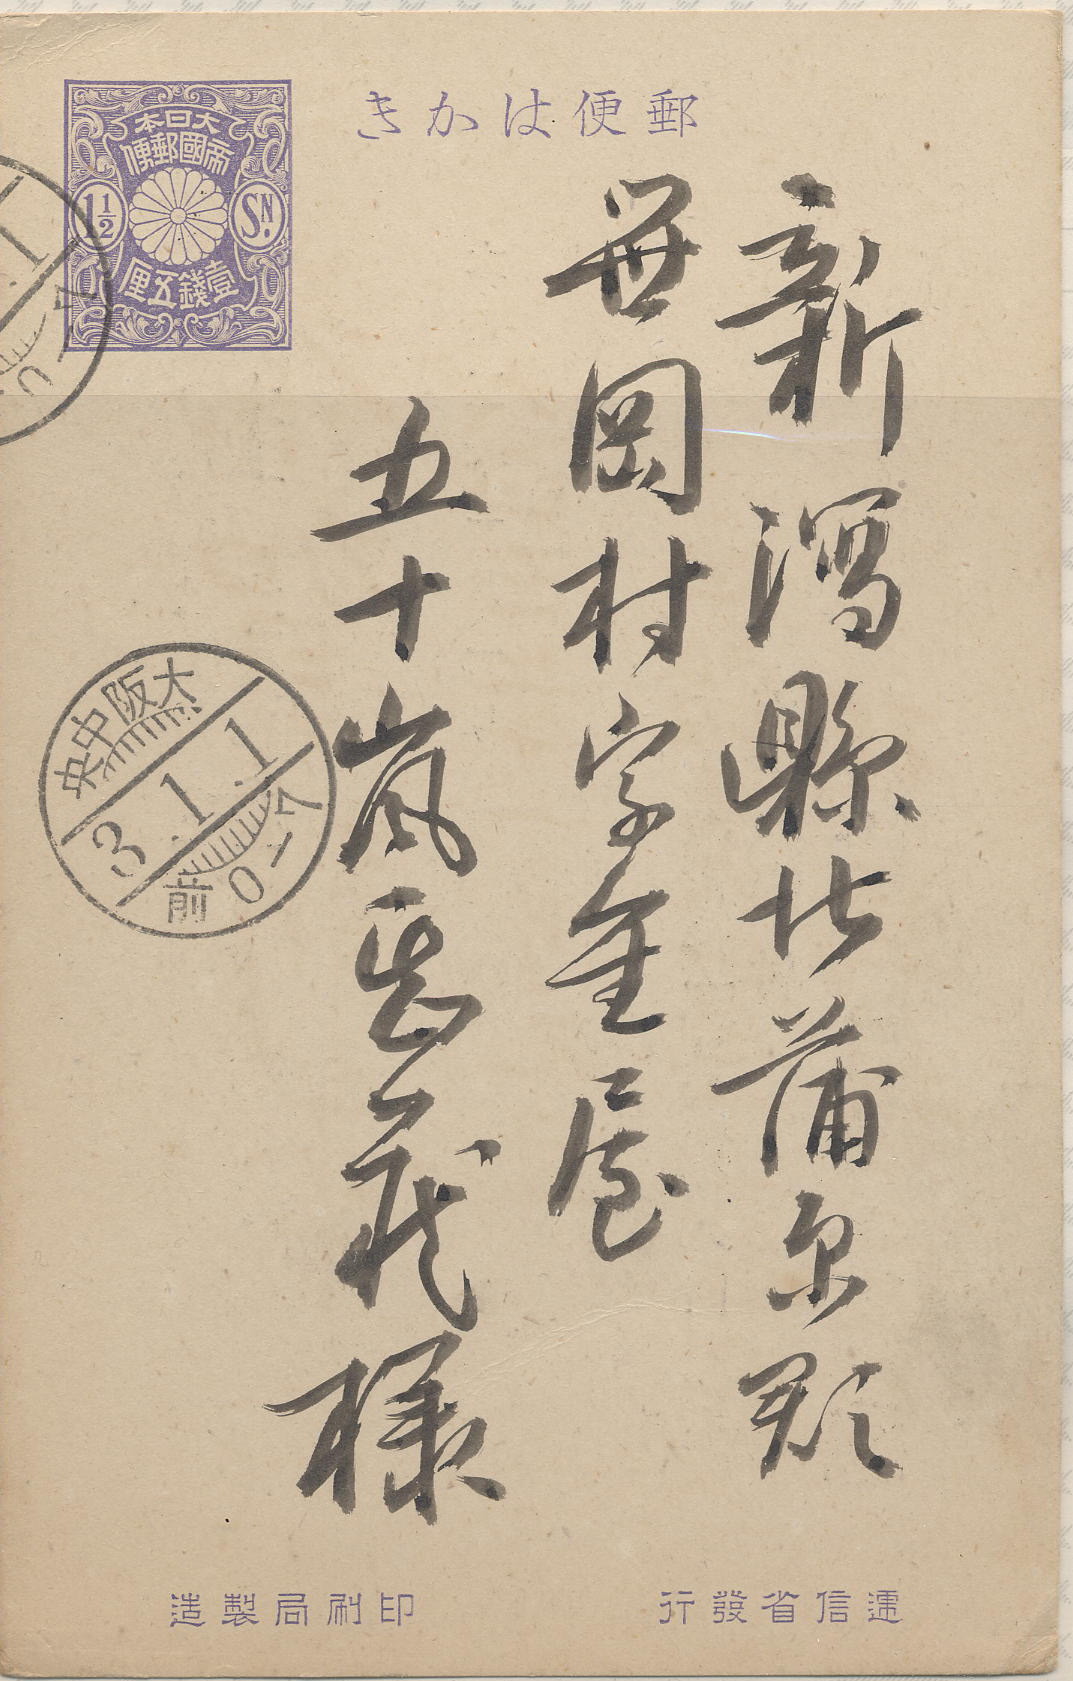 郵便はかき
大日本
帝國郵便
1½
SN.
壹錢五厘
新潟縣北蒲原郡
笹岡村字金屋
五十嵐
様
大阪中央
3.1.1
前0-7
.1
0-7
遞信省發行
印刷局製造